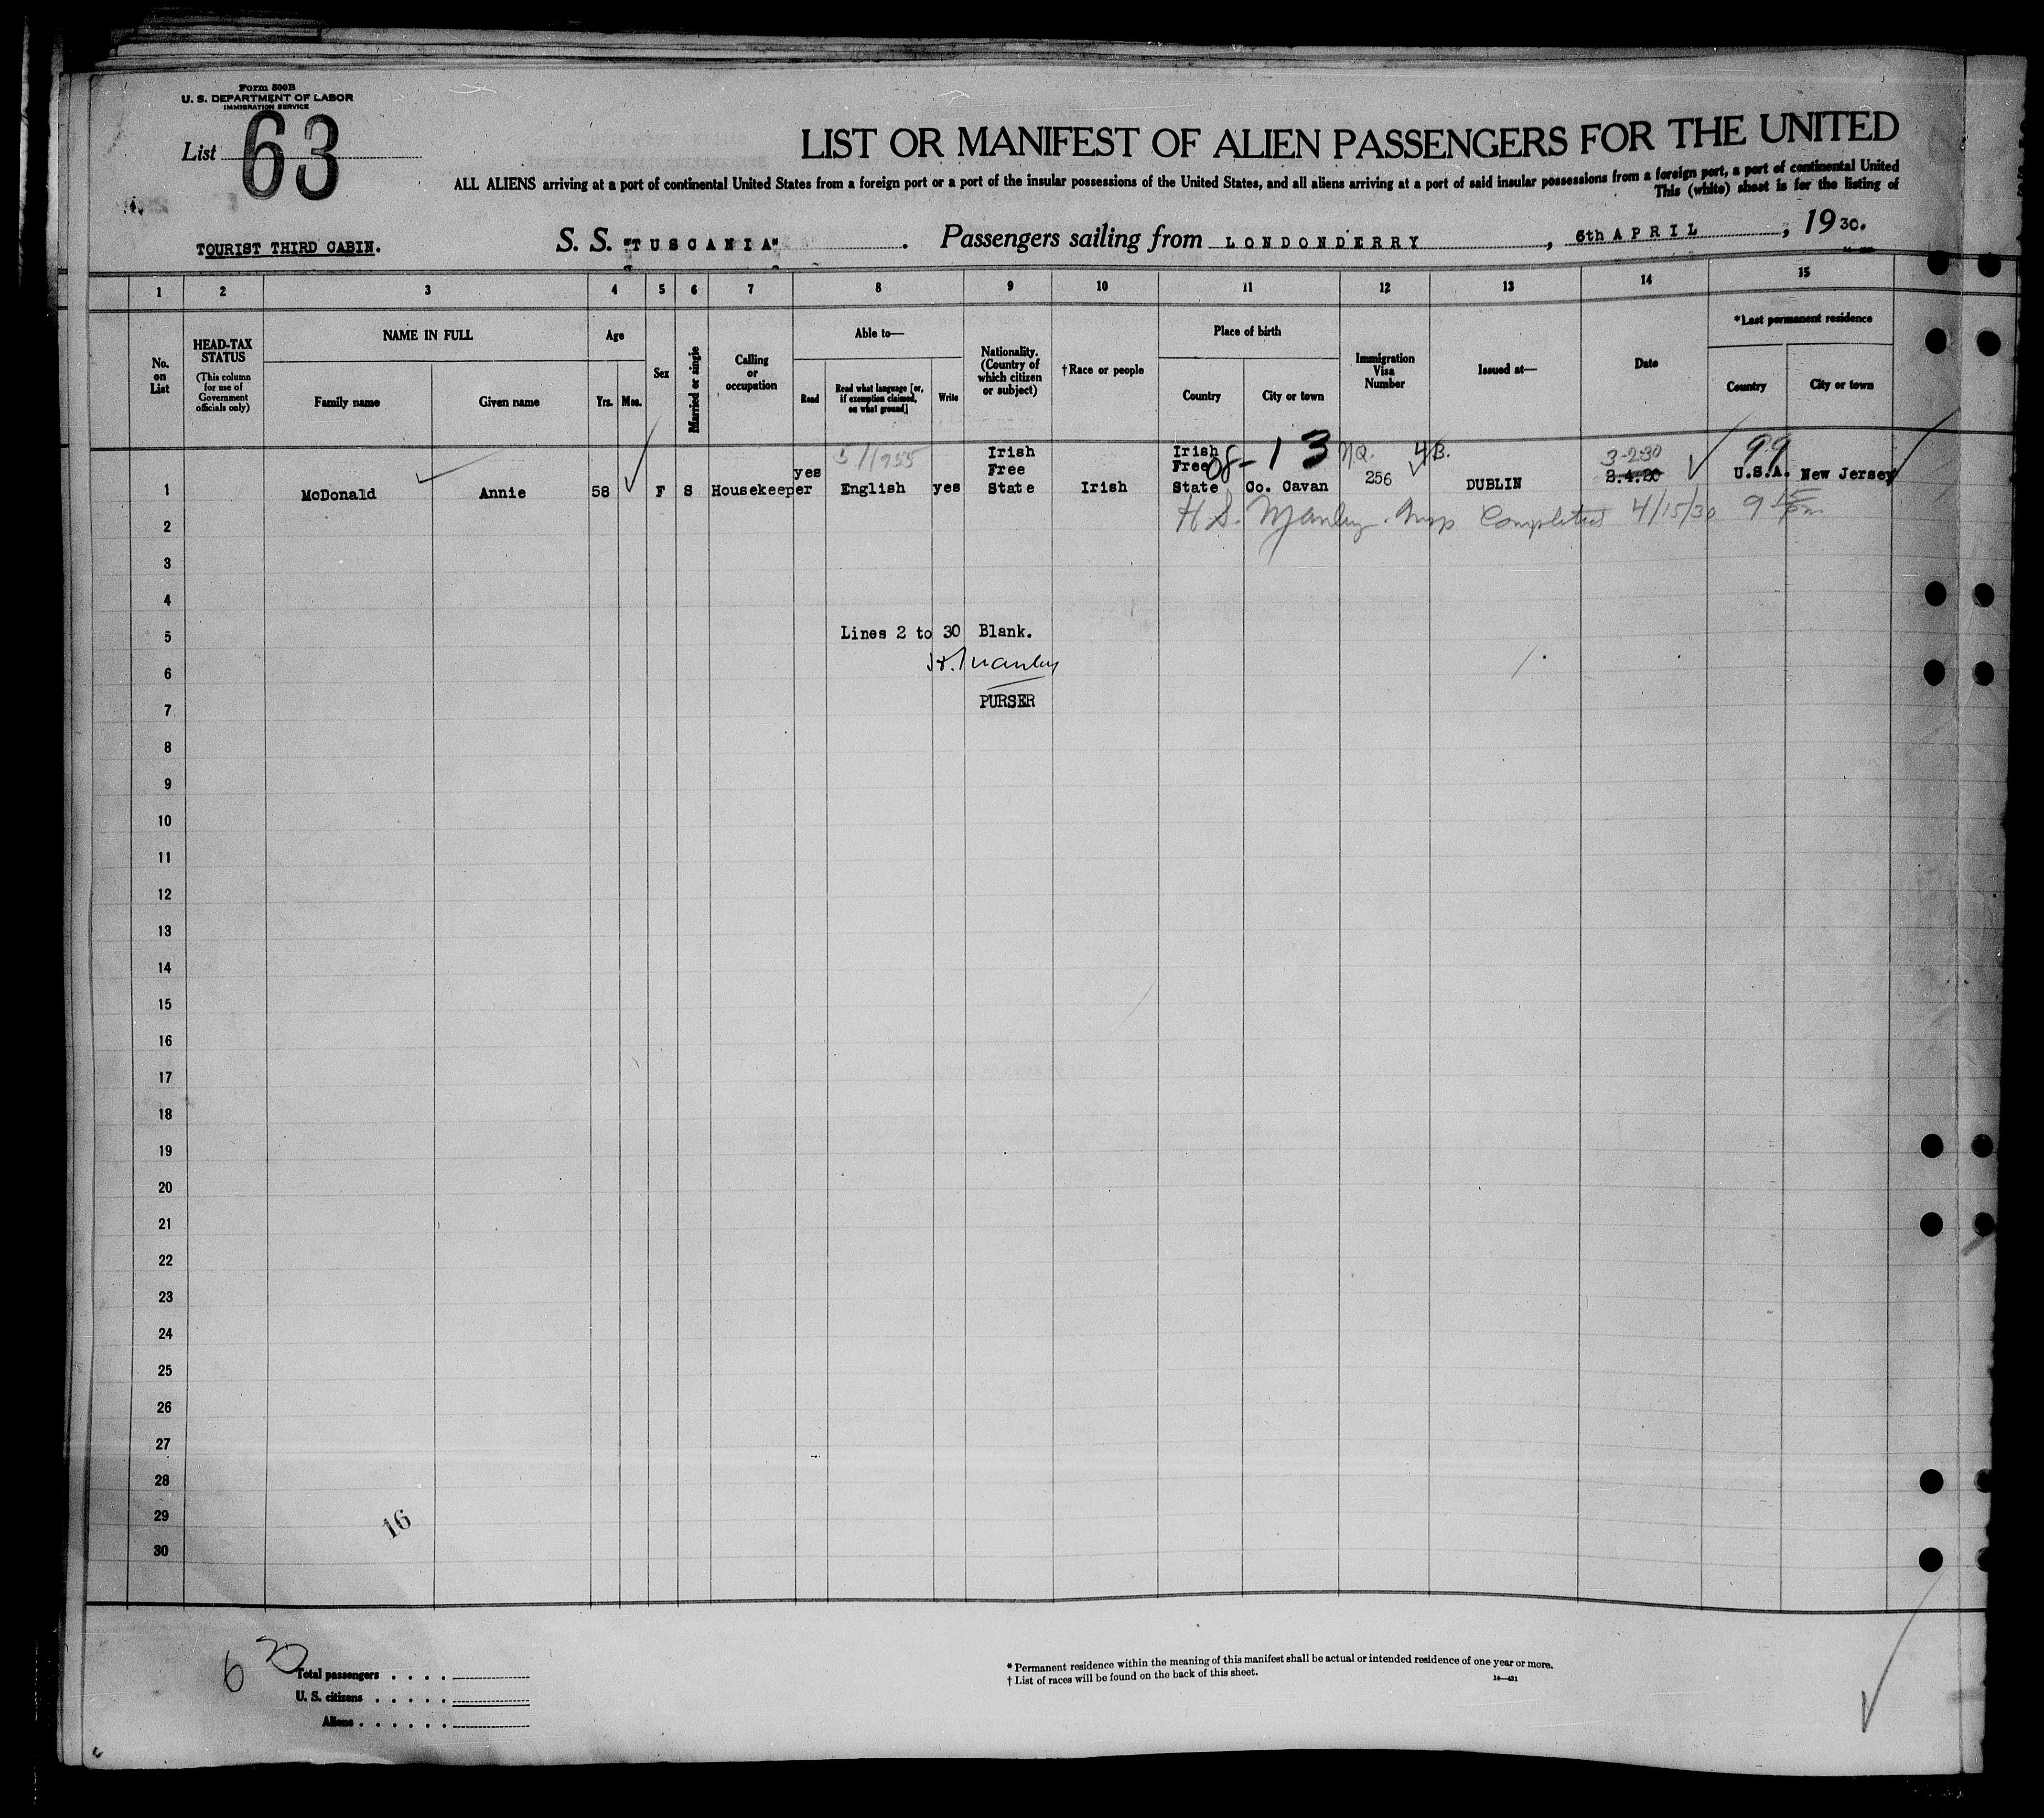 Form 500B
U. S. DEPARTMENT OF LABOR
IMMIGRATION SERVICE
List 63
LIST OR MANIFEST OF ALIEN PASSENGERS FOR THE UNITED
ALL ALIENS arriving at a port of continental United States from a foreign port or a port of the insular possessions of the United States, and all aliens arriving at a port of said insular possessions from a foreign port, a port of continental United
This (white) sheet is for the listing of
TOURIST THIRD CABIN.
S. S. "TUSCANIA" . Passengers sailing from LONDONDERRY , 6th APRIL , 19 30.
1 2 3 4 5 6 7 8 9 10 11 12 13 14 15
No. on List
HEAD-TAX STATUS (This column for use of Government officials only)
NAME IN FULL
Family name Given name
Age
Yrs. Mos.
Sex
Married or single
Calling or occupation
Able to—
Read
Read what language [or, if exemption claimed, on what ground]
Write
Nationality. (Country of which citizen or subject)
†Race or people
Place of birth
Country City or town
Immigration Visa Number
Issued at—
Date
*Last permanent residence
Country City or town
1 McDonald Annie 58 F S Housekeeper yes English yes Irish Free State Irish Irish Free State Co. Cavan 256 DUBLIN 3-2-30 U.S.A. New Jersey
08-13 4B. 99
2 H S. Manley Insp Completed 4/15/30 9 15 pm
3
4
5 Lines 2 to 30 Blank.
6 H. Manley
7 PURSER
8
9
10
11
12
13
14
15
16
17
18
19
20
21
22
23
24
25
26
27
28
29 16
30
Total passengers . . . .
U. S. citizens . . . . .
Aliens . . . . . .
* Permanent residence within the meaning of this manifest shall be actual or intended residence of one year or more.
† List of races will be found on the back of this sheet.
14—431